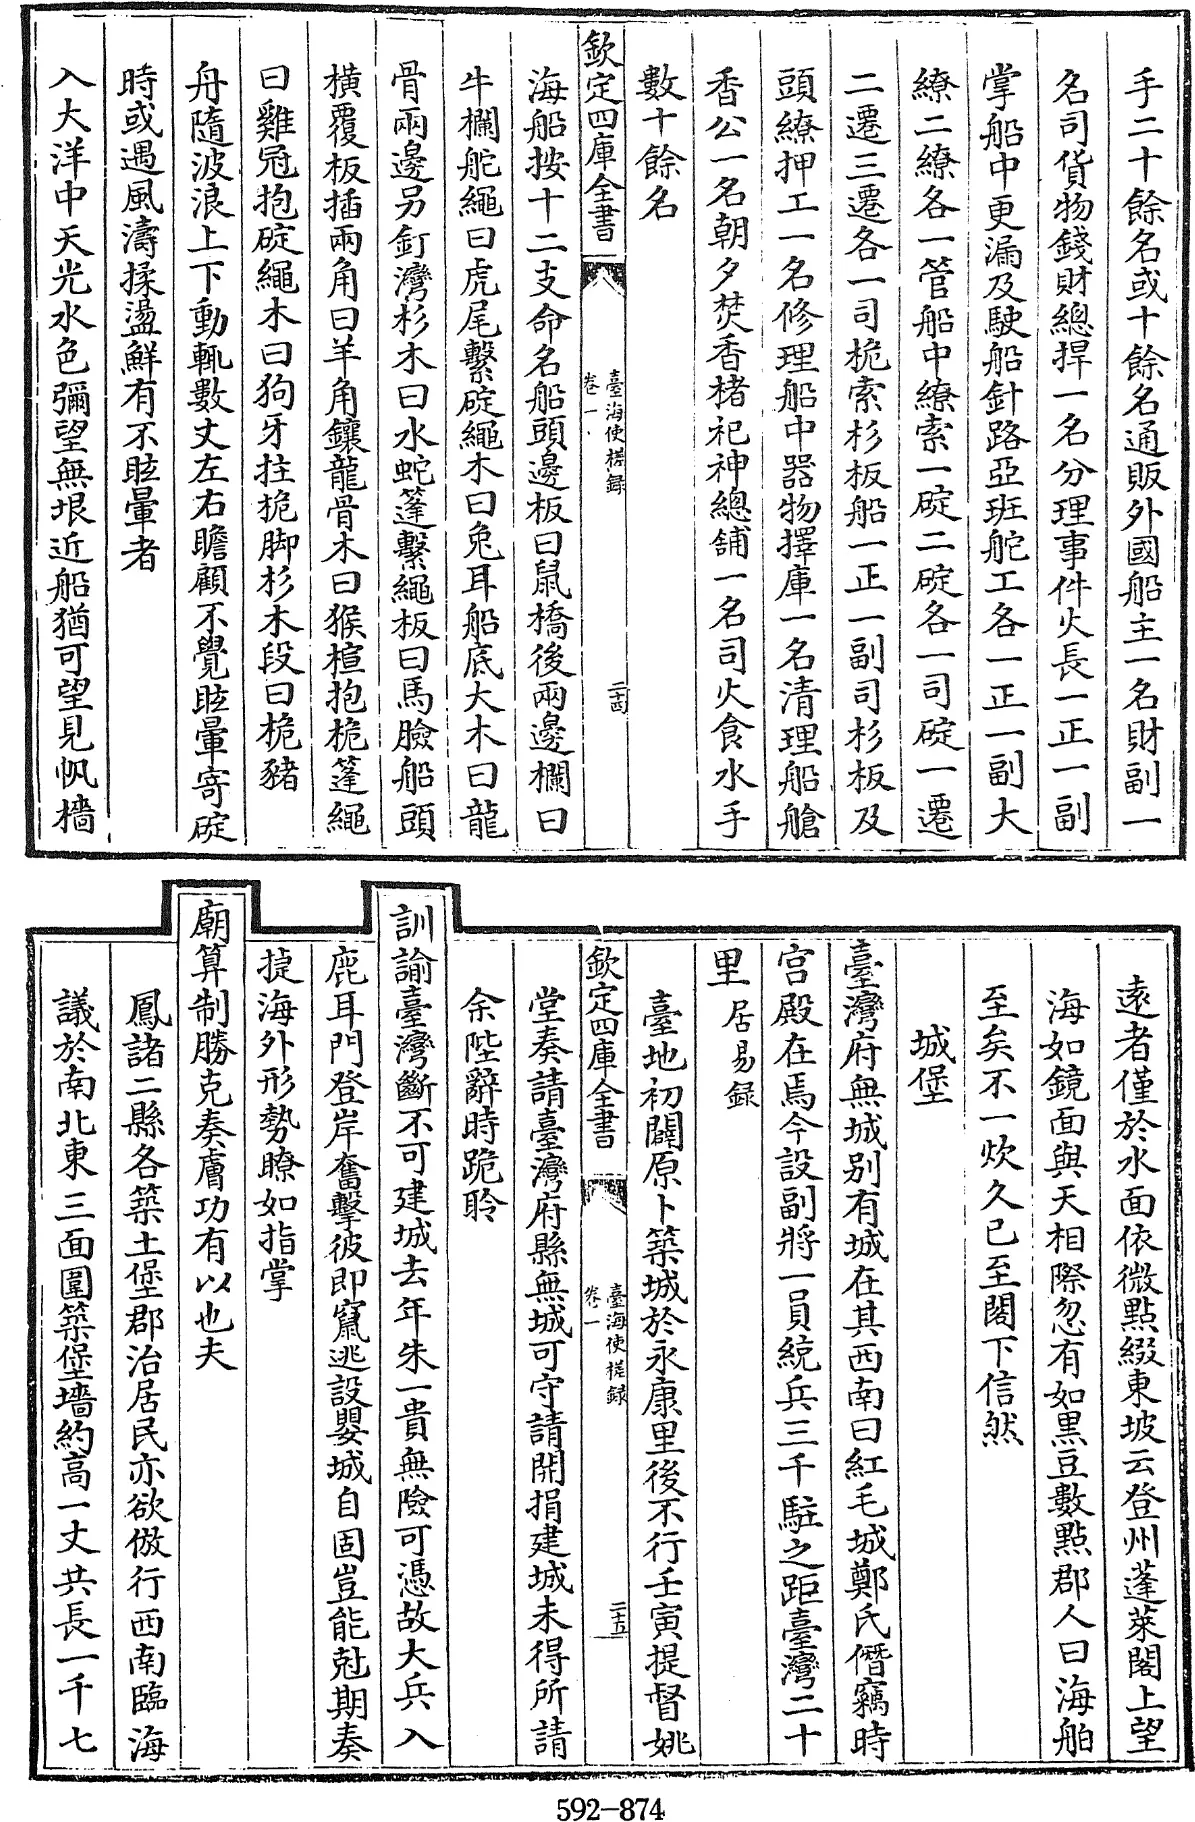 手二十餘名或十餘名通販外國船主一名財副一
名司貨物錢財總捍一名分理事件火長一正一副
掌船中更漏及駛船針路亞班舵工各一正一副大
繚二繚各一管船中繚索一碇二碇各一司碇一遷
二遷三遷各一司桅索杉板船一正一副司杉板及
頭繚押工一名修理船中器物擇庫一名清理船艙
香公一名朝夕焚香楮祀神總鋪一名司火食水手
數十餘名
欽定四庫全書
臺海使槎録
卷一
二十四
海船按十二支命名船頭邊板曰鼠橋後兩邊欄曰
牛欄舵繩曰虎尾繫碇繩木曰兔耳船底大木曰龍
骨兩邊另釘灣杉木曰水蛇篷繫繩板曰馬臉船頭
橫覆板插兩角曰羊角鑲龍骨木曰猴楦抱桅篷繩
曰雞冠抱碇繩木曰狗牙拄桅脚杉木段曰桅豬
舟隨波浪上下動輒數丈左右瞻顧不覺眩暈寄碇
時或遇風濤揉盪鮮有不眩暈者
入大洋中天光水色彌望無垠近船猶可望見帆檣
遠者僅於水面依微點綴東坡云登州蓬萊閣上望
海如鏡面與天相際忽有如黑豆數點郡人曰海舶
至矣不一炊久已至閣下信然
城堡
臺灣府無城别有城在其西南曰紅毛城鄭氏僭竊時
宫殿在焉今設副將一員統兵三千駐之距臺灣二十
里居易録
臺地初闢原卜築城於永康里後不行壬寅提督姚
欽定四庫全書
臺海使槎録
卷一
二十五
堂奏請臺灣府縣無城可守請開捐建城未得所請
余陛辭時跪聆
訓諭臺灣斷不可建城去年朱一貴無險可憑故大兵入
鹿耳門登岸奮擊彼即竄逃設嬰城自固豈能尅期奏
捷海外形勢瞭如指掌
廟算制勝克奏膚功有以也夫
鳳諸二縣各築土堡郡治居民亦欲倣行西南臨海
議於南北東三面圍築堡墻約高一丈共長一千七
592-874